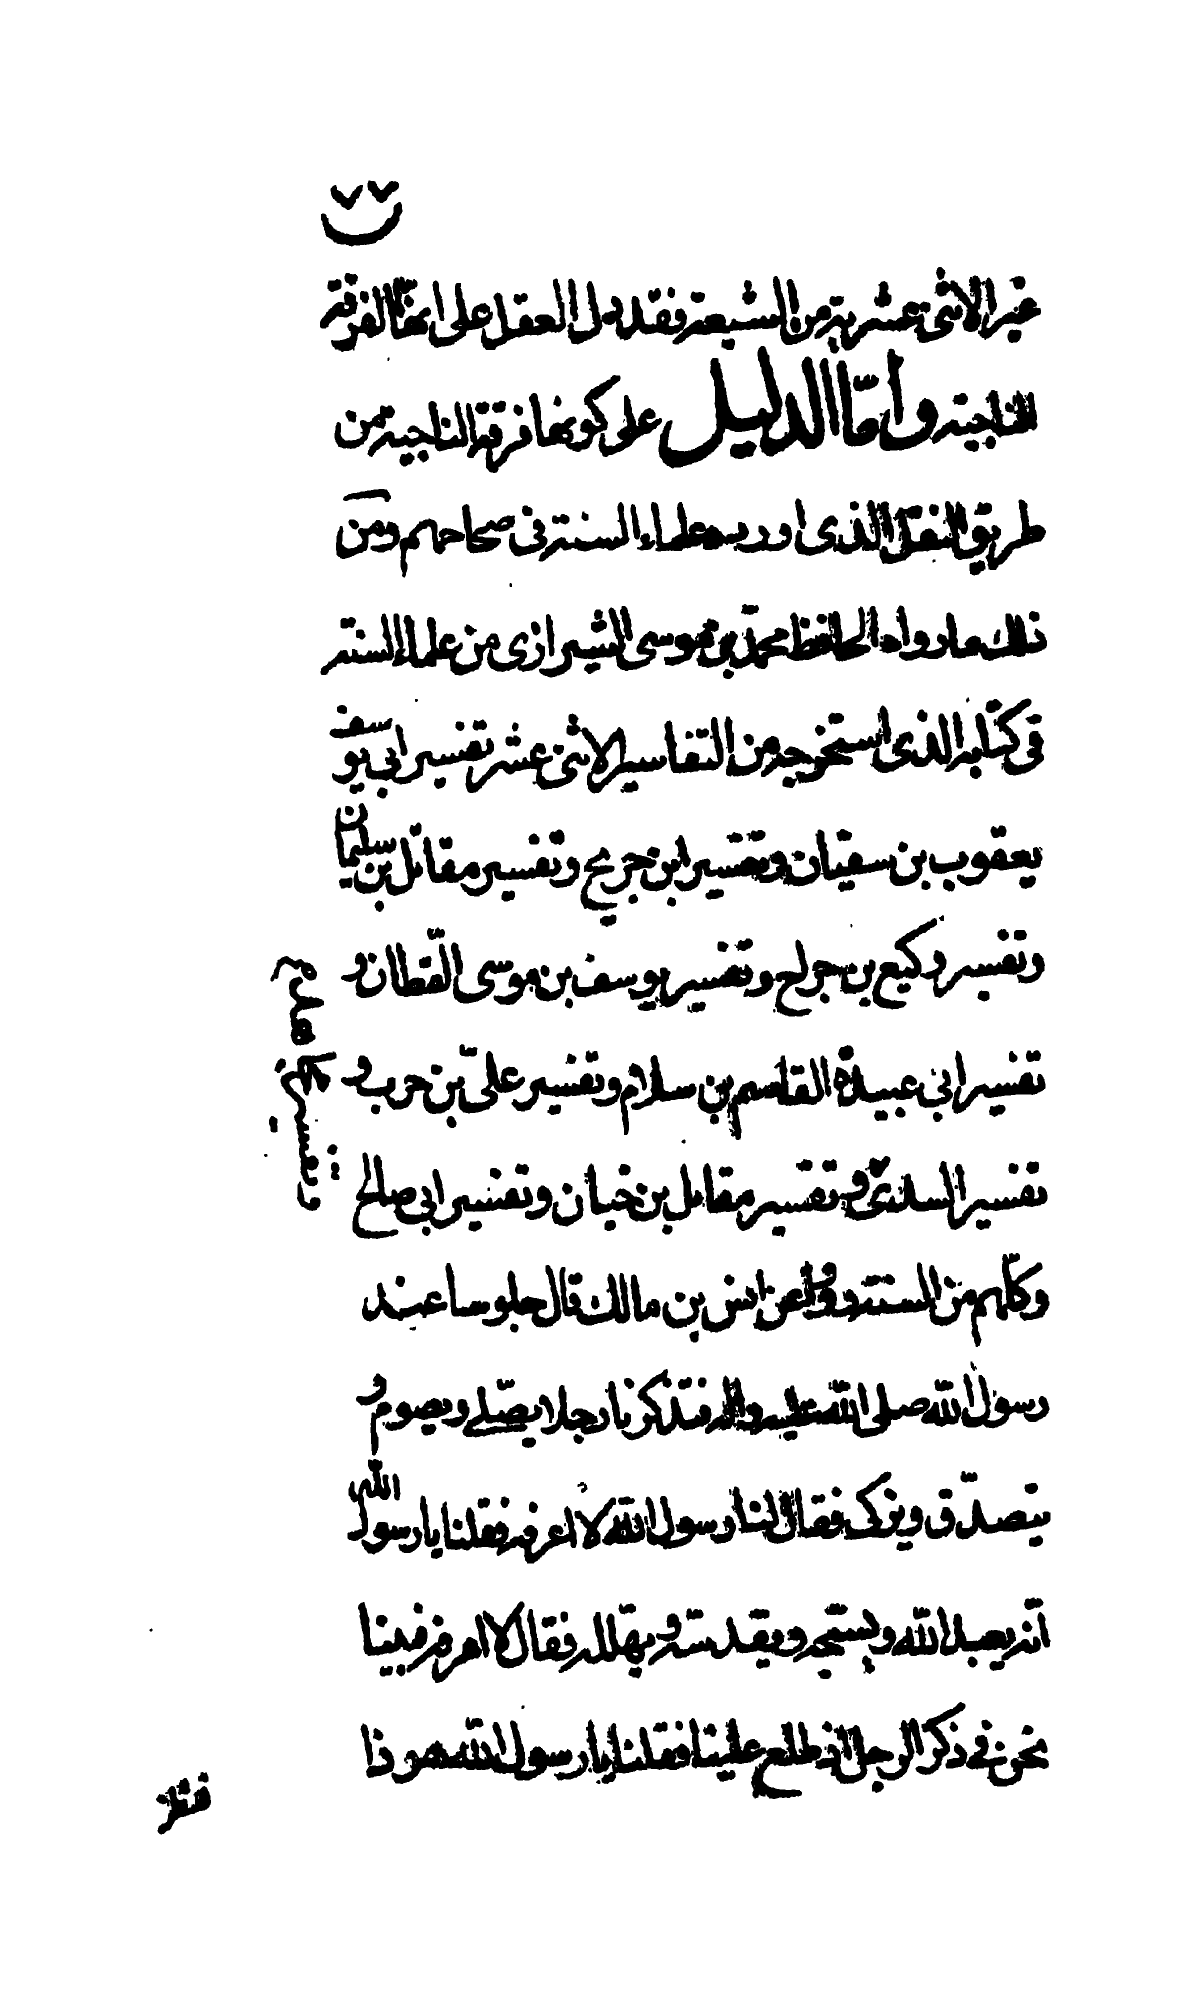 غير الاثنى عشرية من الشيعة فقد دل العقل على انها الفرقة
الناجية واما الدليل على كونها فرقة الناجية من
طريق النقل الذى اورده علماء السنة فى صحاحهم ومن
ذلك ما رواه الحافظ محمد بن موسى الشيرازى من علماء السنة
فى كتابه الذى استخرجه من التفاسير الاثنى عشر تفسير ابى يوسف
يعقوب بن سفيان وتفسير ابن جريح وتفسير مقاتل بن سليمان
وتفسير وكيع بن جراح وتفسير يوسف بن موسى القطان و
تفسير ابى عبيدة القاسم بن سلام وتفسير على بن حرب و
تفسير السدى و تفسير مقاتل بن حيان وتفسير ابى صالح
وكلهم من السنة عن انس بن مالك قال جلوسا عند
رسول الله صلى الله عليه واله فتذكرنا رجلا يصلے ويصوم و
يتصدق ويزكى فقال لنا رسول الله لا اعرفه فقلنا يا رسول الله
انه يعبد الله ويسبحه ويقدسه و يهلله فقال لا اعرفه فبينا
نحن فى ذكر الرجل اذ طلع علينا فقلنا يا رسول الله هو ذا
فنظر